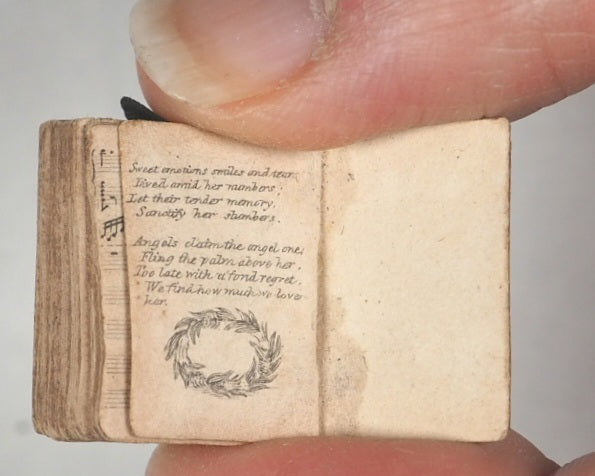 Sweet emotions smiles and tear
Lived amid her numbers;
Let their tender memory,
Sanctify her slumbers.
Angels claim the angel one;
Fling the palm above her,
Too late with a fond regret,
We find how much we love
her.